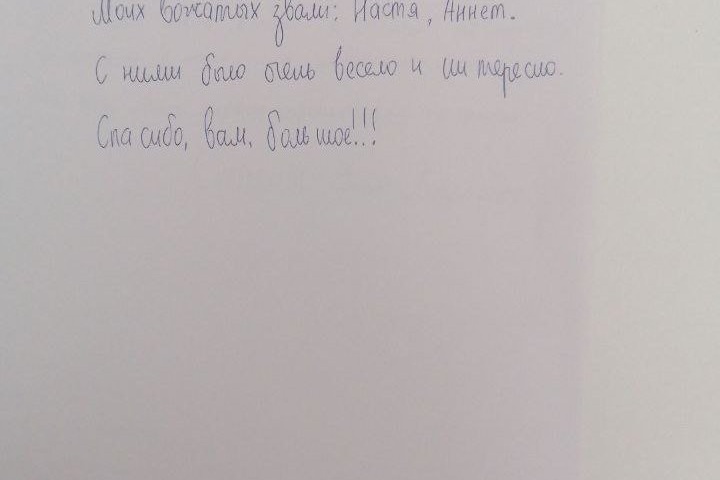 Моих вожатых звали: Настя, Аннет.
С ними было очень весело и интересно.
Спасибо, вам, большое!!!